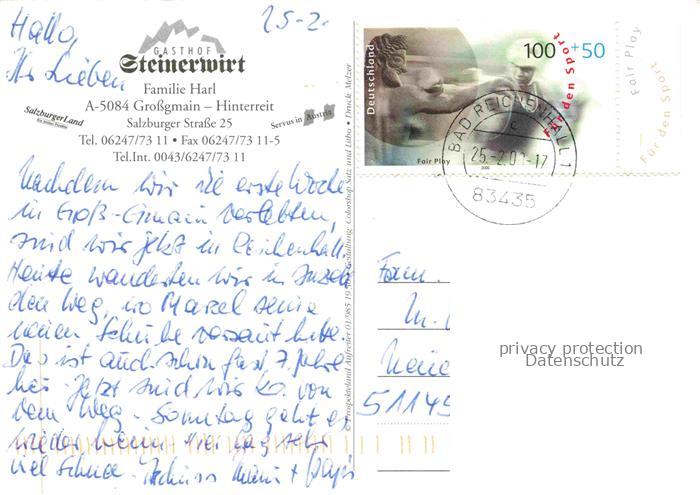 Hallo, 25-2.
Ihr Lieben
GASTHOF
Steinerwirt
Familie Harl
A-5084 Großgmain – Hinterreit
Salzburger Straße 25
Tel. 06247/73 11 • Fax 06247/73 11-5
Tel.Int. 0043/6247/73 11
SalzburgerLand
Servus in Austria
Nachdem wir die erste Woche
in Groß-Gmain verlebten,
sind wir jetzt in Reichenhall.
Heute wanderten wir in
den Weg, wo Marcel seine
neuen Schuhe versaut hatte.
Das ist auch schon fast 7 Jahre
her. Jetzt sind wir k.o. von
dem Weg. Sonntag geht es
wieder heim. Hier lag sehr
viel Schnee. Tschüss +
Gestaltung: Colorshop Satz und Litho • Druck: Melzer
Deutschland
100 +50
Für den Sport
Fair Play
2000
Fair Play
Für den Sport
BAD REICHENHALL 1
c
25.-2.0 -17
83435
Fam.
Neue
51145
privacy protection
Datenschutz